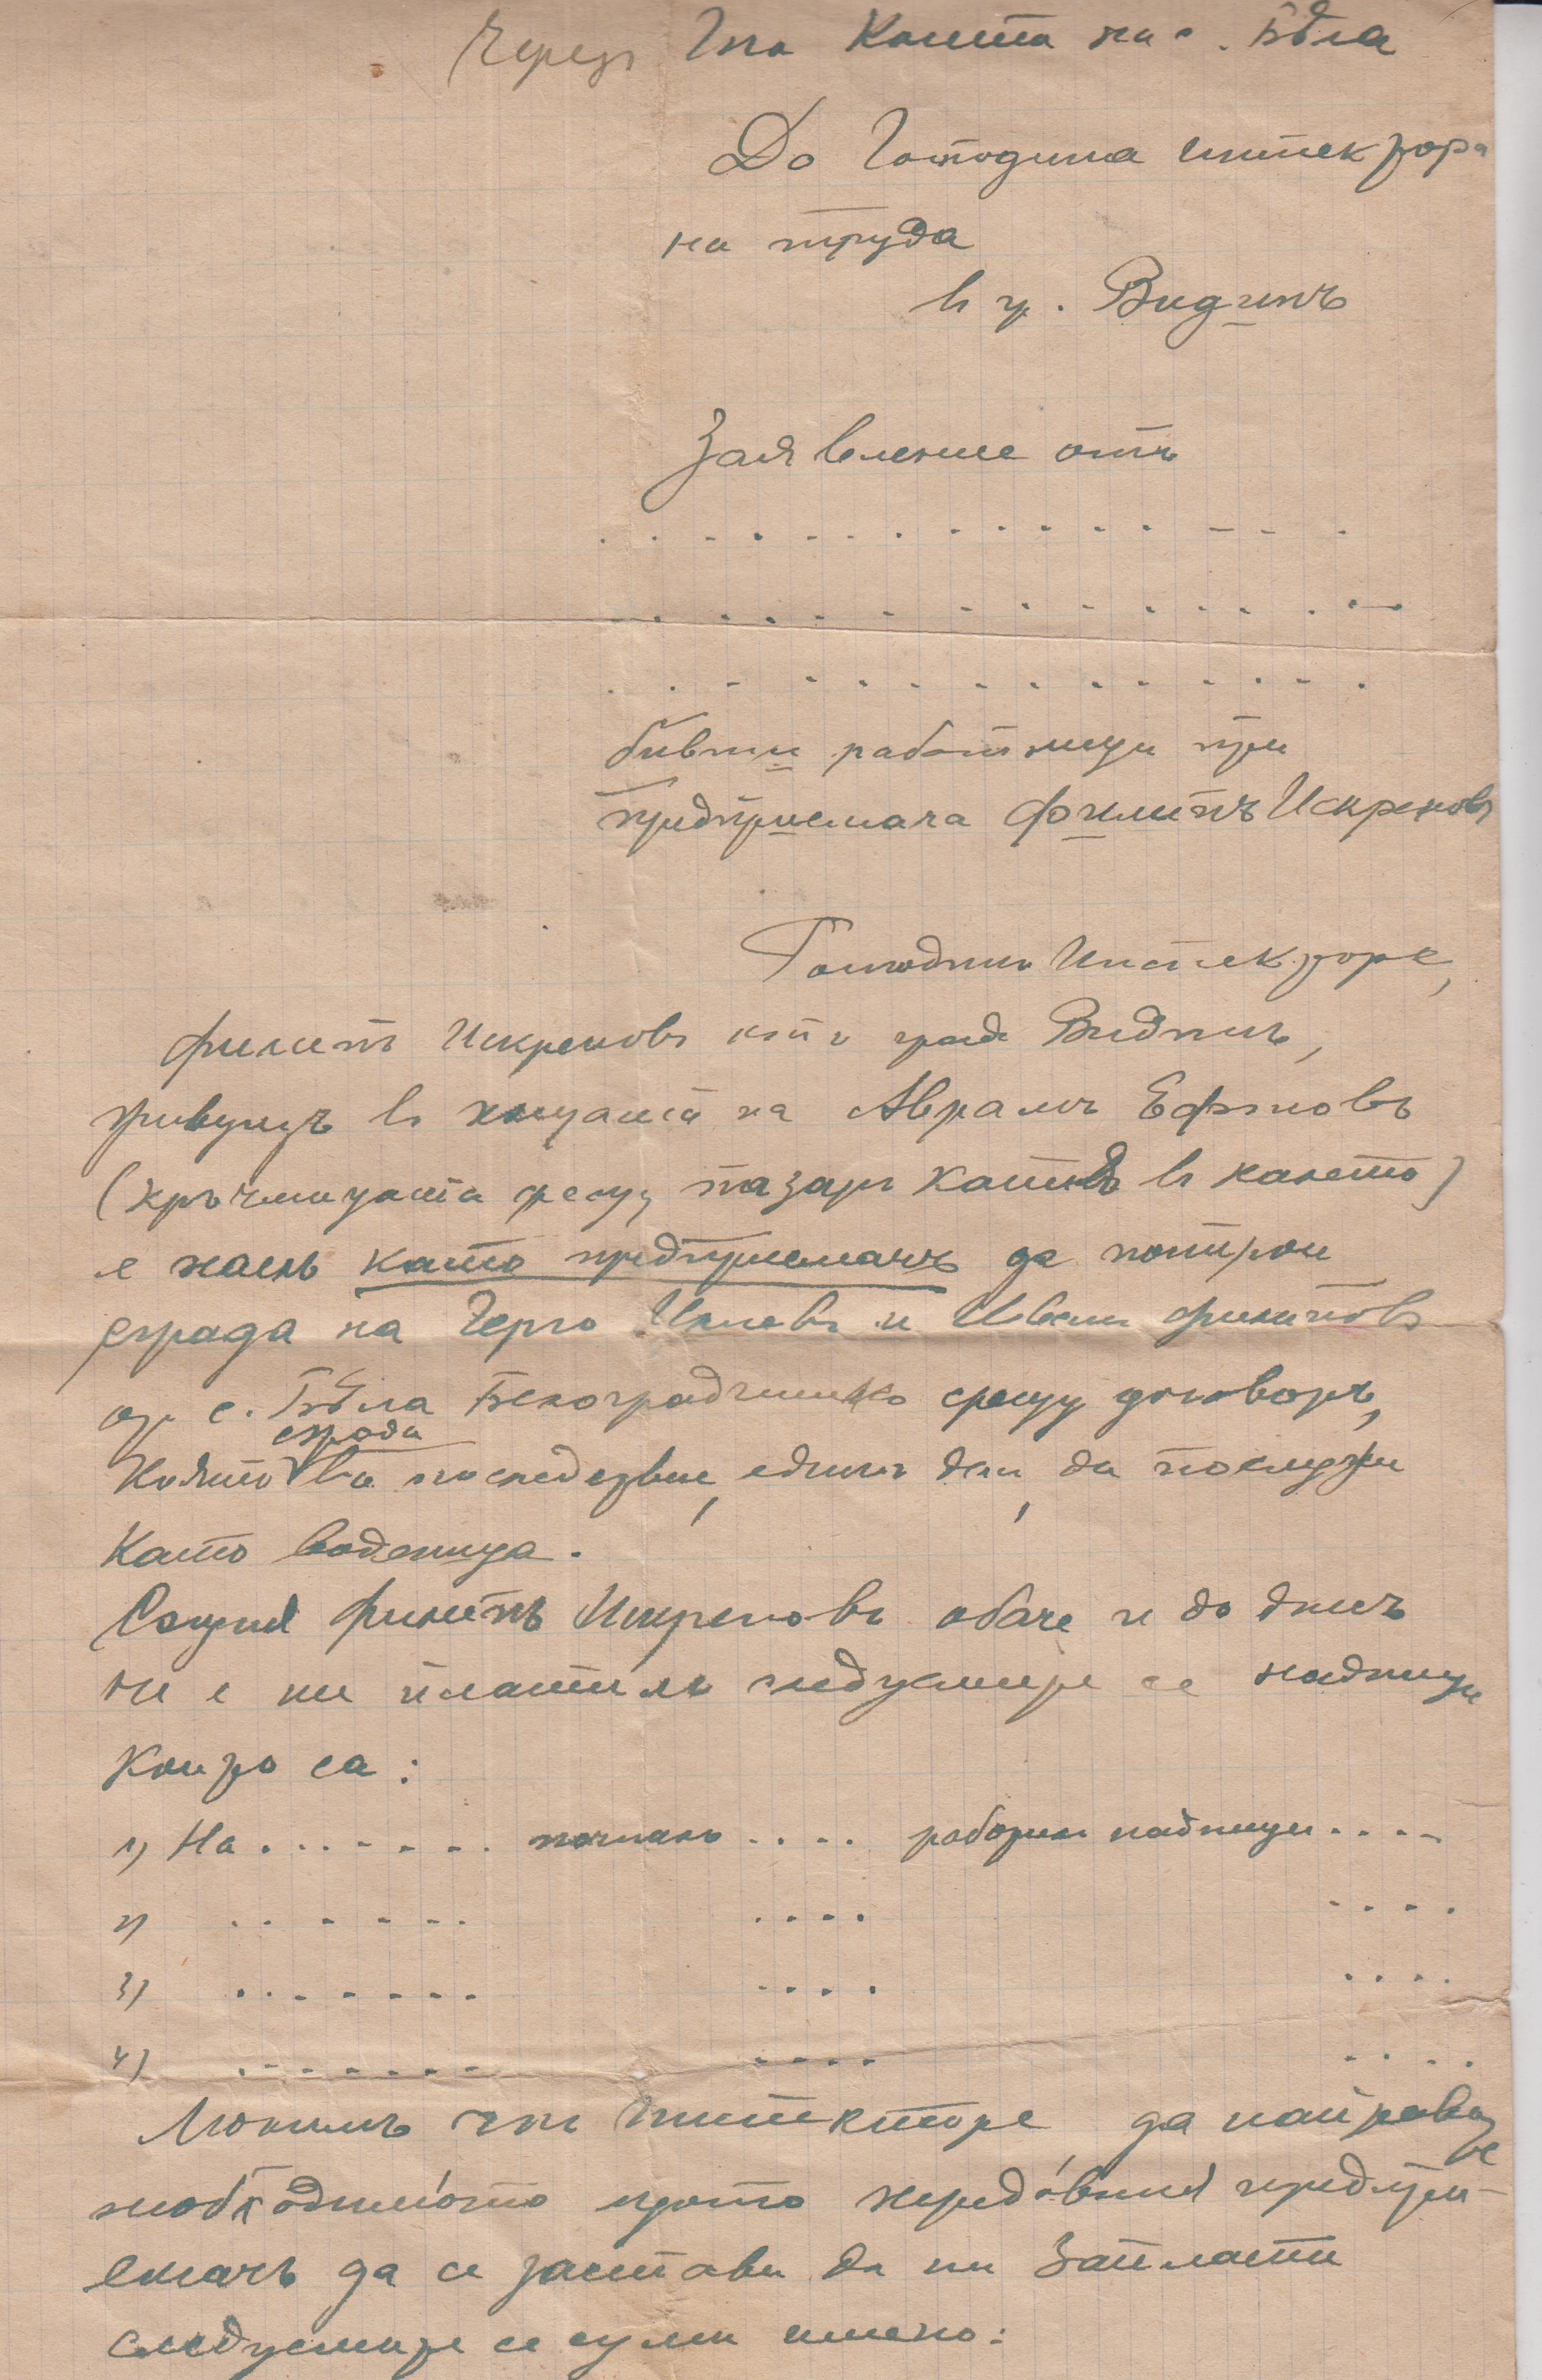 Чрезъ Г-на Кмета на с. Бѣла
До Господина инспектора
на труда
въ гр. Видинъ
Заявление отъ
. . . . . . . . . . . . . . .
. . . . . . . . . . . . . . .
. . . . . . . . . . . . . . .
бивши работници при
предприемача Филипъ Искреновъ
Господинъ Инспекторе,
Филипъ Искреновъ отъ градъ Видинъ,
въ на Аврамъ
(кръчмицата срещу пазаря въ)
е наелъ като предприемачъ да построи
сграда на Герго и Филиповъ
отъ с. Бѣла Белоградчишко срещу договоръ,
която сграда въ последствие, единъ день, да послужи
като воденица.
Сащия Филипъ Искреновъ обаче и до днесъ
не е ни платилъ следуемите се надници
които са:
1) На . . . . . . . . . . . работилъ надници . . . .
2) . . . . . . . . . . . . . .
3) . . . . . . . . . . . . . . .
4) . . . . . . . . . . . . . . .
Молимъ г-нъ Инспекторе да направите
необходимото щото нередовния предпри-
емачъ да се застави да ни заплати
следуемите се суми именно: